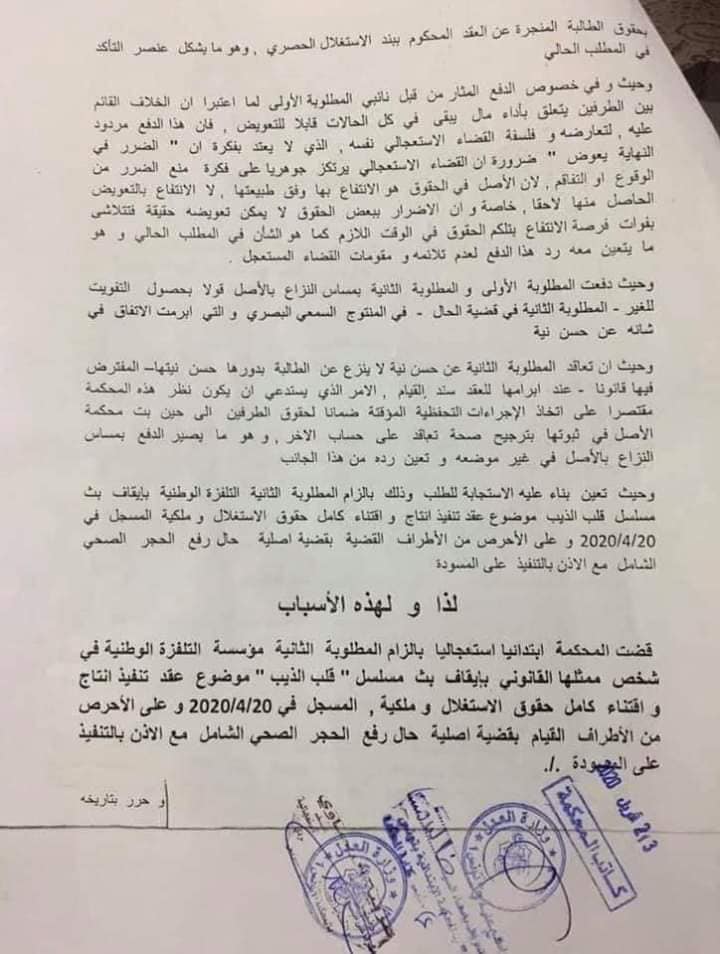 بحقوق الطالبة المنجرة عن العقد المحكوم ببند الاستغلال الحصري , وهو ما يشكل عنصر التأكد
في المطلب الحالي
وحيث و في خصوص الدفع المثار من قبل نائبي المطلوبة الأولى لما اعتبرا ان الخلاف القائم
بين الطرفين يتعلق بأداء مال يبقى في كل الحالات قابلا للتعويض , فان هذا الدفع مردود
عليه , لتعارضه و فلسفة القضاء الاستعجالي نفسه , الذي لا يعتد بفكرة ان " الضرر في
النهاية يعوض " ضرورة ان القضاء الاستعجالي يرتكز جوهريا على فكرة منع الضرر من
الوقوع او التفاقم , لان الأصل في الحقوق هو الانتفاع بها وفق طبيعتها , لا الانتفاع بالتعويض
الحاصل منها لاحقا , خاصة و ان الاضرار ببعض الحقوق لا يمكن تعويضه حقيقة فتتلاشى
بفوات فرصة الانتفاع بتلكم الحقوق في الوقت اللازم كما هو الشأن في المطلب الحالي و هو
ما يتعين معه رد هذا الدفع لعدم تلائمه و مقومات القضاء المستعجل .
وحيث دفعت المطلوبة الأولى و المطلوبة الثانية بمساس النزاع بالأصل قولا بحصول التفويت
للغير – المطلوبة الثانية في قضية الحال - في المنتوج السمعي البصري و التي ابرمت الاتفاق في
شانه عن حسن نية
وحيث ان تعاقد المطلوبة الثانية عن حسن نية لا ينزع عن الطالبة بدورها حسن نيتها– المفترض
فيها قانونا - عند ابرامها للعقد سند القيام , الامر الذي يستدعي ان يكون نظر هذه المحكمة
مقتصرا على اتخاذ الإجراءات التحفظية المؤقتة ضمانا لحقوق الطرفين الى حين بت محكمة
الأصل في ثبوتها بترجيح صحة تعاقد على حساب الاخر , و هو ما يصير الدفع بمساس
النزاع بالأصل في غير موضعه و تعين رده من هذا الجانب
وحيث تعين بناء عليه الاستجابة للطلب وذلك بالزام المطلوبة الثانية التلفزة الوطنية بإيقاف بث
مسلسل قلب الذيب موضوع عقد تنفيذ انتاج و اقتناء كامل حقوق الاستغلال و ملكية المسجل في
2020/4/20 و على الأحرص من الأطراف القضية بقضية اصلية حال رفع الحجر الصحي
الشامل مع الاذن بالتنفيذ على المسودة
لذا و لهذه الأسباب
قضت المحكمة ابتدائيا استعجاليا بالزام المطلوبة الثانية مؤسسة التلفزة الوطنية في
شخص ممثلها القانوني بإيقاف بث مسلسل " قلب الذيب " موضوع عقد تنفيذ انتاج
و اقتناء كامل حقوق الاستغلال و ملكية , المسجل في 2020/4/20 و على الأحرص
من الأطراف القيام بقضية اصلية حال رفع الحجر الصحي الشامل مع الاذن بالتنفيذ
على المسودة ./.
و حرر بتاريخه
23 فريل 2020
كاتب المحكمة
وزارة العدل
وزارة العدل